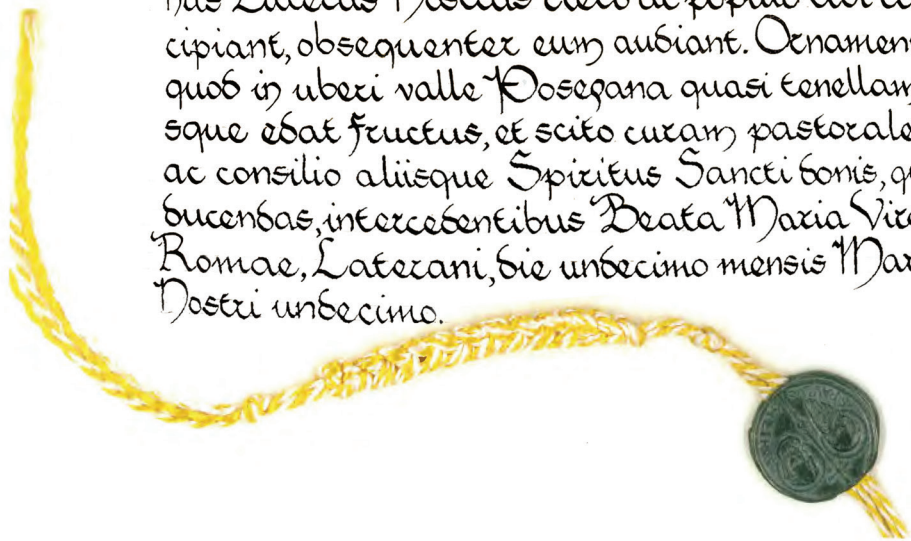 has Litteras Nostras clero ac populo
cipiant, obsequenter eum audiant. Ornamen
quod in uberi valle Posegana quasi tenellam
sque edat fructus, et scito curam pastorale
ac consilio aliisque Spiritus Sancti donis, q
ducendas, intercedentibus Beata Maria Virg
Romae, Laterani, die undecimo mensis Mar
Nostri undecimo.